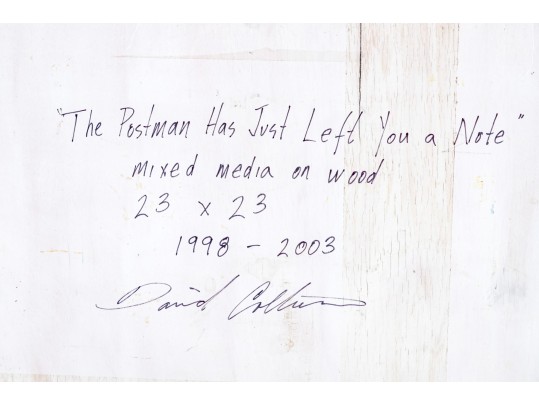 "The Postman Has Just Left You a Note"
mixed media on wood
23 x 23
1998 - 2003
David